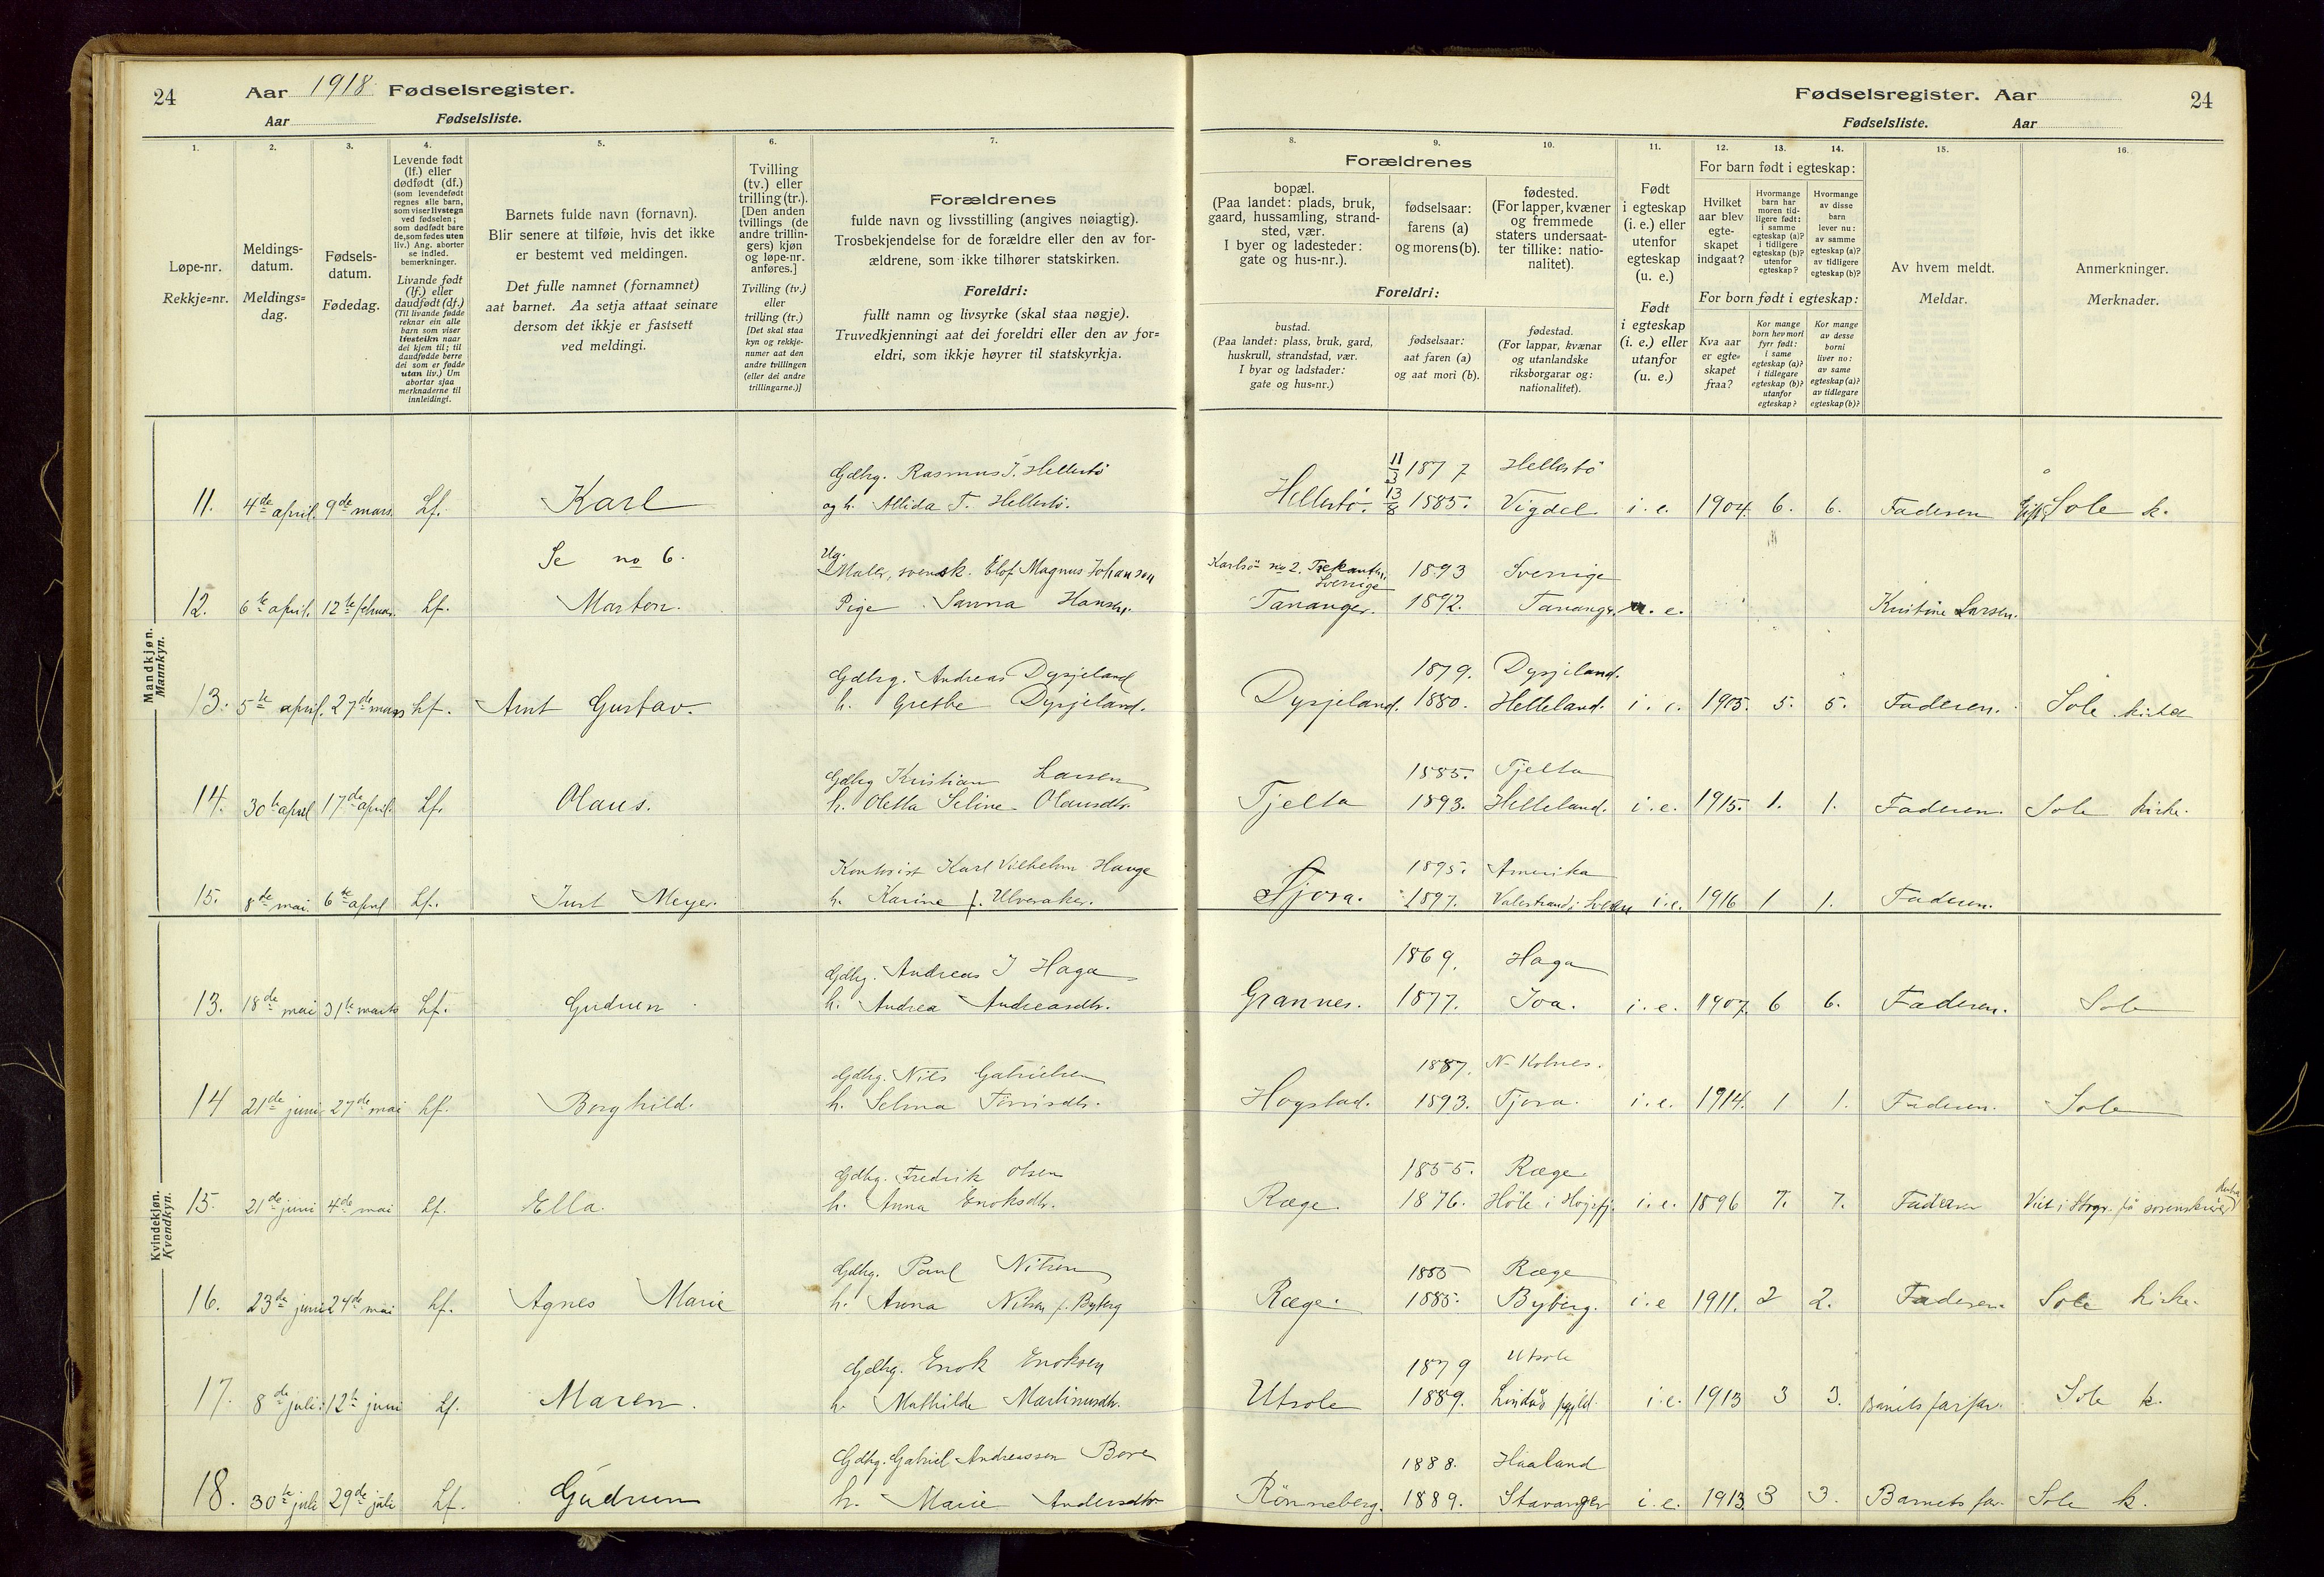 24
Aar 1918 Fødselsregister.
Aar
Fødselsliste.
1.
2.
3.
4.
5.
6.
7.
Løpe-nr.
Rekkje=nr.
Meldings-
datum.
Meldings=
dag.
Fødsels-
datum.
Fødedag.
Levende født
(lf.) eller
dødfødt (df.)
(som levendefødt
regnes alle barn,
som viser livstegn
ved fødselen;
som dødfødt bare
de, som fødes uten
liv.) Ang. aborter
se indled.
bemerkninger.
Livande født
(lf.) eller
daudfødt (df.)
(Til livande fødde
reknar ein alle
barn som viser
livsteikn naar
dei kjem til; til
daudfødde berre
dei som er fødde
utan liv.) Um
abortar sjaa
merknaderne til
innleidingi.
Barnets fulde navn (fornavn).
Blir senere at tilføie, hvis det ikke
er bestemt ved meldingen.
Det fulle namnet (fornamnet)
aat barnet. Aa setja attaat seinare
dersom det ikkje er fastsett
ved meldingi.
Tvilling
(tv.) eller
trilling (tr.).
[Den anden
tvillings (de
andre trillin-
gers) kjøn
og løpe-nr.
anføres.]
Tvilling (tv.)
eller
trilling (tr.)
[Det skal staa
kyn og rekkje-
numer aat den
andre tvillingen
(eller dei andre
trillingarne.)]
Forældrenes
fulde navn og livsstilling (angives nøiagtig).
Trosbekjendelse for de forældre eller den av for-
ældrene, som ikke tilhører statskirken.
Foreldri:
fullt namn og livsyrke (skal staa nøgje).
Truvedkjenningi aat dei foreldri eller den av for=
eldri, som ikkje høyrer til statskyrkja.
Fødselsregister. Aar
24
Fødselsliste.
Aar
8.
9.
10.
11.
12.
13.
14.
15.
16.
Forældrenes
bopæl.
(Paa landet: plads, bruk,
gaard, hussamling, strand-
sted, vær.
I byer og ladesteder:
gate og hus-nr.).
fødselsaar:
farens (a)
og morens (b).
fødested.
(For lapper, kvæner
og fremmede
staters undersaat-
ter tillike: natio-
nalitet).
Foreldri:
bustad.
(Paa landet: plass, bruk, gard,
huskrull, strandstad, vær.
I byar og ladstader:
gate og hus=nr.)
fødselsaar:
aat faren (a)
og aat mori (b).
fødestad.
(For lappar, kvænar
og utanlandske
riksborgarar og:
nationalitet).
Født
i egteskap
(i. e.) eller
utenfor
egteskap
(u. e.)
Født
i egteskap
(i. e.) eller
utanfor
(u. e.)
For barn født i egteskap:
Hvilket
aar blev
egte-
skapet
indgaat?
Hvormange
barn har
moren tid-
ligere født:
i samme
egteskap (a)?
i tidligere
egteskap (b)?
utenfor
egteskap?
Hvormange
av disse
barn
lever nu:
av samme
egteskap (a)?
av tidligere
egteskap (b)?
For born født i egteskap:
Kva aar
er egte=
skapet
fraa?
Kor mange
born hev mori
fyrr født:
i same
egteskap (a)?
i tidlegare
egteskap (b)?
utanfor
egteskap?
Kor mange
av desse
borni
liver no:
av same
egteskap (a)?
av tidlegare
egteskap (b)?
Av hvem meldt.
Meldar.
Anmerkninger.
Merknader.
Mandkjøn.
Mannkyn.
Gdbrg. Rasmus T. Hellestö 11/3 1877 Hellestö
11. 4de april. 9de mars. Lf. Karl og h. Allida T. Hellestö. Hellestö. 13/8 1885. Vigdel. i. e. 1904. 6. 6. Faderen Sole k.
Se no 6. Ug. Maler, svensk. Elof Magnus Johanson Karlsö no 2. Sverrige 1893 Sverrige
12. 6te april. 12te februar. Lf. Morton. Pige Sanna Hansen. Tananger. 1892. Tananger. u. e. Kristine Larsen.
Gdbrg. Andreas Dysjeland 1879. Dysjeland.
13. 5te april. 27de mars Lf. Arnt Gustav. h. Grethe Dysjeland. Dysjeland. 1880. Helleland. i. e. 1905. 5. 5. Faderen. Sole kirke
Gdbrg Kristian Larsen 1885. Tjelta
14. 30te april 17de april. Lf. Olaus. h. Oletta Seline Olausdtr. Tjelta 1893. Helleland. i. e. 1915. 1. 1. Faderen. Sole kirke.
Kontorist Karl Vilhelm Hauge 1895. Amerika
15. 8de mai. 6te april Lf. Just Meyer. h. Karine f. Ulveraker. Tjora. 1897. Valestrand i i.e. 1916 1 1. Faderen.
Kvindekjøn.
Kvendkyn.
Gdbrg. Andreas J Haga 1869. Haga
13. 18de mai 31te marts Lf. Gudrun h. Andrea Andreasdtr. Grannes. 1877. Joa. i. e. 1907. 6 6. Faderen. Sole
Gdbrg. Nils Gabrielsen 1887. N. Kolnes.
14 21de juni 27de mai Lf. Borghild. h. Selma Tönnisdtr. Hogstad. 1893. Tjora. i. e. 1914. 1 1. Faderen. Sole
Gdbrg. Fredrik Olsen 1855. Ræge
15. 21de juni 4de mai Lf. Ella. h. Anna Enoksdtr. Ræge. 1876. Höle i Høgsfj. i. e. 1896 7. 7. Faderen Viet i Stvgr. fö sorenskriver
Gdbrg. Paul Nilsen 1885 Ræge
16. 23de juni 24de mai Lf. Agnes Marie h. Anna Nilsen f. Byberg Ræge. 1885. Byberg. i. e 1911. 2 2. Faderen. Sole kirke.
Gdbrg. Enok Enoksen 1879 Utsole
17. 8de juli. 12te juni Lf. Maren. h. Mathilde Martinusdtr. Utsole 1889. Lindås pgjld. i. e. 1913 3 3. Barnets farfar. Sole k.
Gdbrg. Gabriel Andreassen Bore 1888. Haaland
18. 30te juli 29de juli Lf. Gudrun h. Marie Andersdtr Rönneberg. 1889. Stavanger i. e. 1913. 3 3. Barnets far. Sole k.